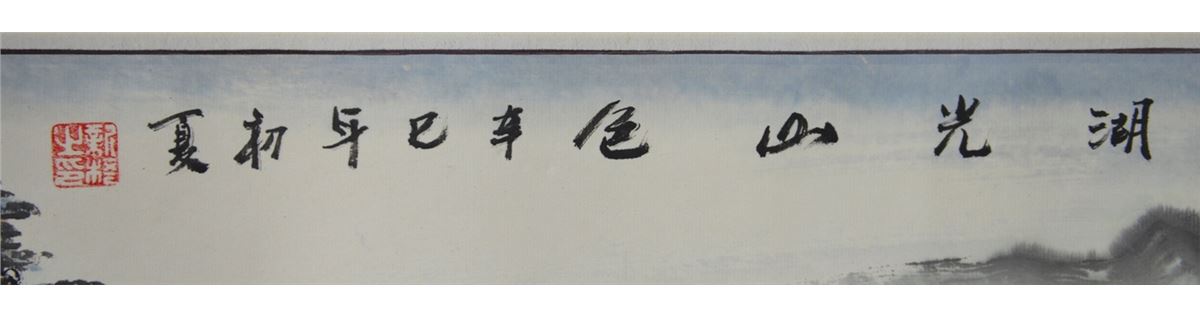 湖光山色辛巳年初夏